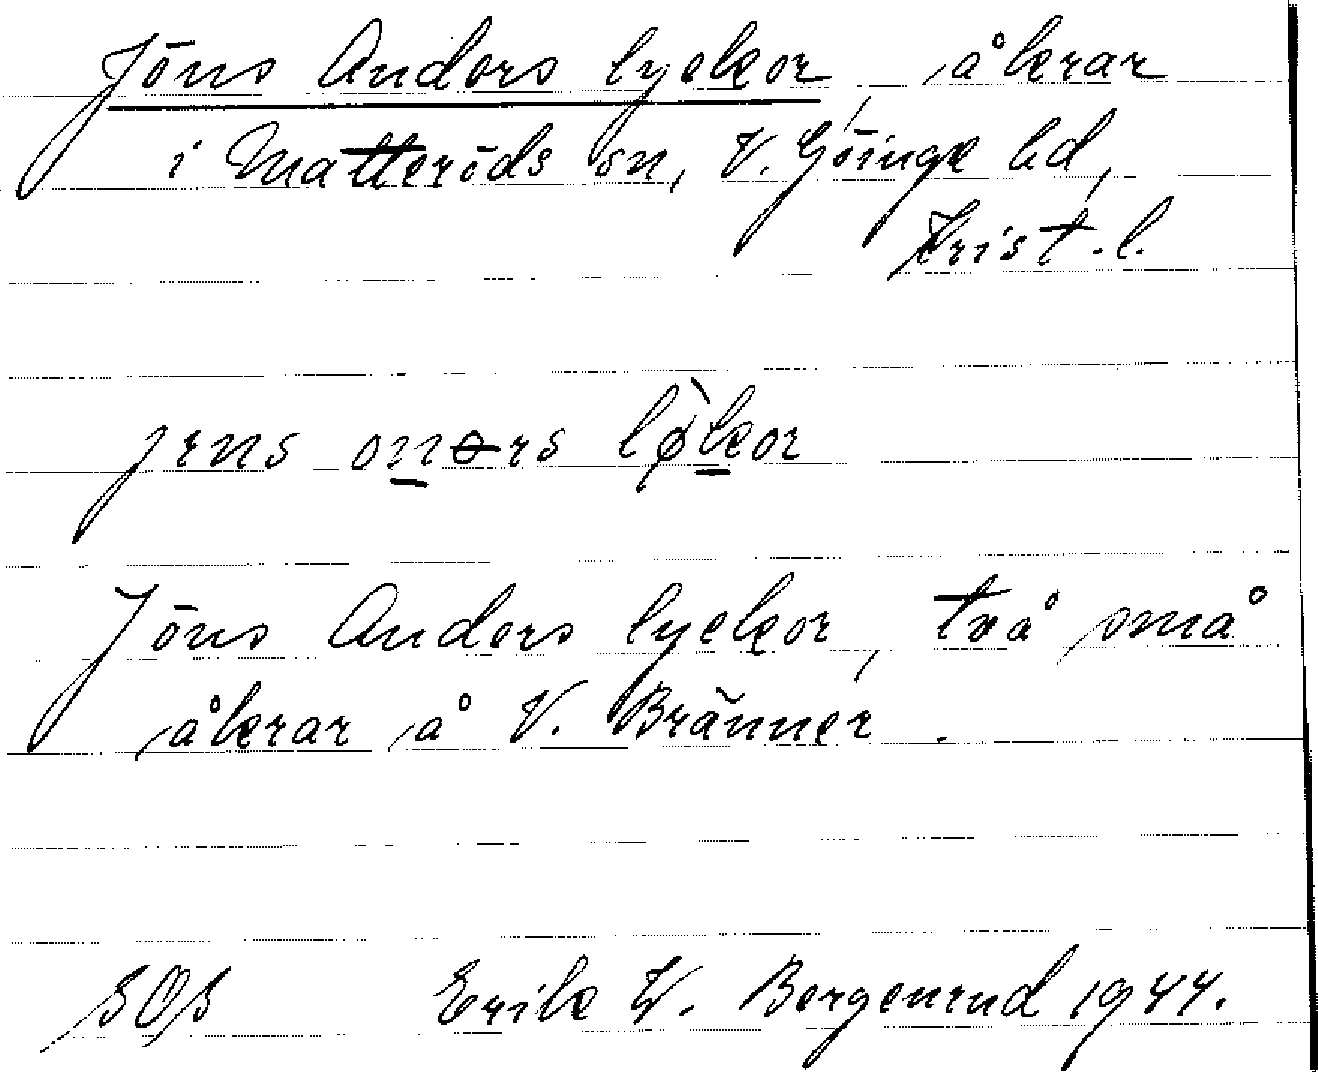 Jöns Anders lyckor, åkrar
i Matteröds sn, V. Göinge hd,
Krist. l.
jens onərs lø̀kor
Jöns Anders lyckor, två små
åkrar å V. Bränner.
SOS Erik W. Bergenrud 1944.